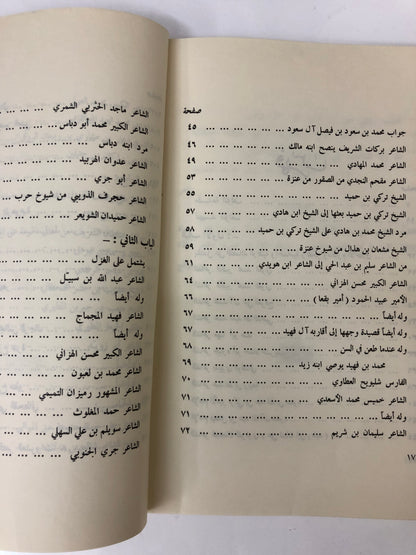 صفحة
جواب محمد بن سعود بن فيصل آل سعود ... ... ... ... ... ٤٥
الشاعر بركات الشريف ينصح ابنه مالك ... ... ... ... ... ٤٦
الشاعر محمد المهادي ... ... ... ... ... ... ... ٤٩
الشاعر مقحم النجدي من الصقور من عنزة ... ... ... ... ٥٣
الشيخ تركي بن حميد ... ... ... ... ... ... ... ٥٥
الشيخ تركي بن حميد بعثها إلى الشيخ ابن هادي ... ... ... ٥٧
مرد الشيخ محمد بن هادي على الشيخ تركي بن حميد ... ... ٥٨
الشيخ مشعان بن هذال من شيوخ عنزة ... ... ... ... ٥٩
من الشاعر سليم بن عبد الحي إلى الشاعر ابن هويدي ... ... ٦١
الشاعر الكبير محسن الهزاني ... ... ... ... ... ... ٦٤
الأمير عبيد الحمود (أمير بقعا) ... ... ... ... ... ٦٦
وله أيضاً ... ... ... ... ... ... ... ... ... ٦٧
وله أيضاً قصيدة وجهها إلى أقاربه آل فهيد ... ... ... ... ٦٧
وله عندما طعن في السن ... ... ... ... ... ... ... ٦٨
محمد بن فهيد يوصي ابنه زيد ... ... ... ... ... ... ٦٩
الفارس شليويح العطاوي ... ... ... ... ... ... ... ٧٠
الشاعر خميس محمد الأسعدي ... ... ... ... ... ... ٧١
وله أيضاً ... ... ... ... ... ... ... ... ... ٧١
الشاعر سليمان بن شريم ... ... ... ... ... ... ... ٧٢
١٧
الشاعر ماجد الحثربي الشمري ... ... ...
الشاعر الكبير محمد أبو دباس ... ... ...
مرد ابنه دباس ... ... ... ... ...
الشاعر عدوان الهربيد ... ... ... ...
الشاعر أبو جري ... ... ... ... ...
الشاعر حجرف الذويبي من شيوخ حرب ... ...
الشاعر حميدان الشويعر ... ... ... ...
الباب الثاني : –
يشتمل على الغزل ... ... ... ...
الشاعر عبد الله بن سبيّل ... ... ...
وله أيضاً ... ... ... ... ...
الشاعر فهيد المجماج ... ... ... ...
وله أيضاً ... ... ... ... ...
الشاعر الكبير محسن الهزاني ... ... ...
الشاعر محمد بن لعبون ... ... ... ...
الشاعر المشهور رميزان التميمي ... ... ...
الشاعر حمد المغلوث ... ... ... ...
الشاعر سويلم بن علي السهلي ... ... ...
الشاعر جري الجنوبي ... ... ... ...